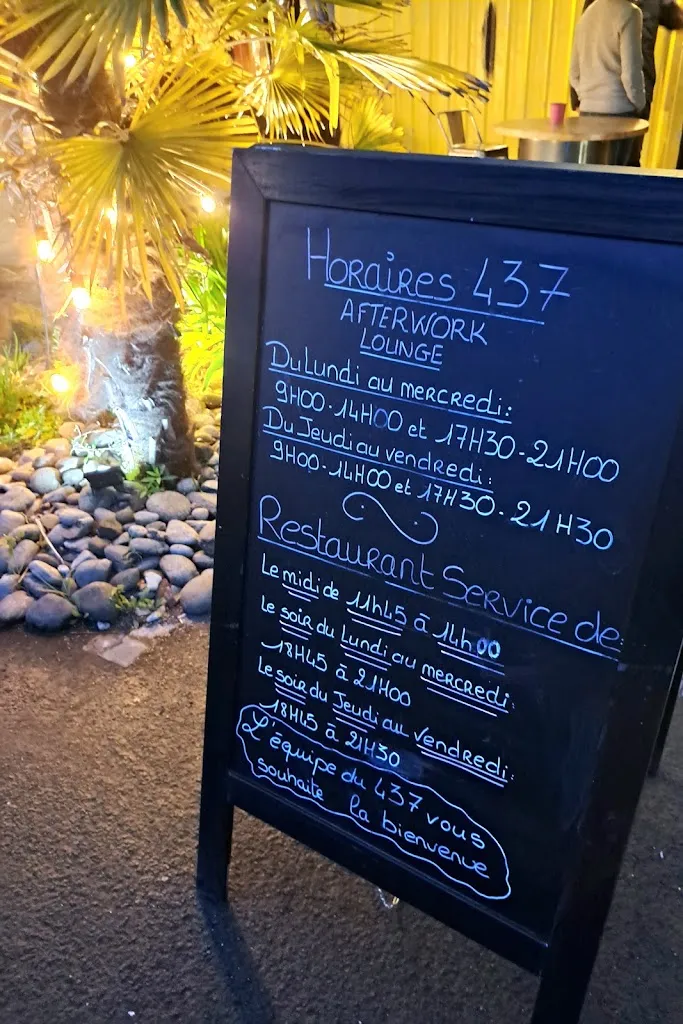 Horaires 437
AFTERWORK
LOUNGE
Du Lundi au mercredi:
9H00-14H00 et 17H30-21H00
Du Jeudi au vendredi:
9H00-14H00 et 17H30-21H30
Restaurant Service de:
Le midi de 11h45 à 14h00
Le soir du Lundi au mercredi:
18H45 à 21H00
Le soir du Jeudi au vendredi:
18H45 à 21H30
L'équipe du 437 vous
souhaite la bienvenue